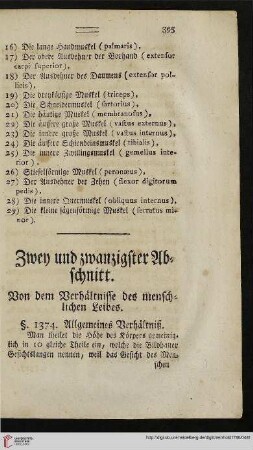 395
16) Die lange Handmuskel (palmaris).
17) Der obere Ausdehner der Vorhand (extensor
carpi superior).
18) Der Ausdehner des Daumens (extensor pol-
licis).
19) Die dreyköpfige Muskel (triceps).
20) Die Schneidermuskel (sartorius).
21) Die häutige Muskel (membranosus).
22) Die äussere große Muskel (vastus externus).
23) Die innere große Muskel (vastus internus).
24) Die äussere Schienbeinsmuskel (tibialis).
25) Die innere Zwillingsmuskel (gemellus inter-
nus).
26) Stiefelförmige Muskel (peronæus).
27) Der Ausdehner der Zehen (flexor digitorum
pedis).
28) Die innere Quermuskel (obliquus internus).
29) Die kleine sägenförmige Muskel (serratus mi-
nor).
Zwey und zwanzigster Ab-
schnitt.
Von dem Verhältnisse des mensch-
lichen Leibes.
§. 1374. Allgemeines Verhältniß.
Man theilet die Höhe des Körpers gemeinig-
lich in 10 gleiche Theile ein, welche die Bildhauer
Gesichtslängen nennen, weil das Gesicht des Men-
schen
UNIVERSITÄTS-
BIBLIOTHEK
HEIDELBERG